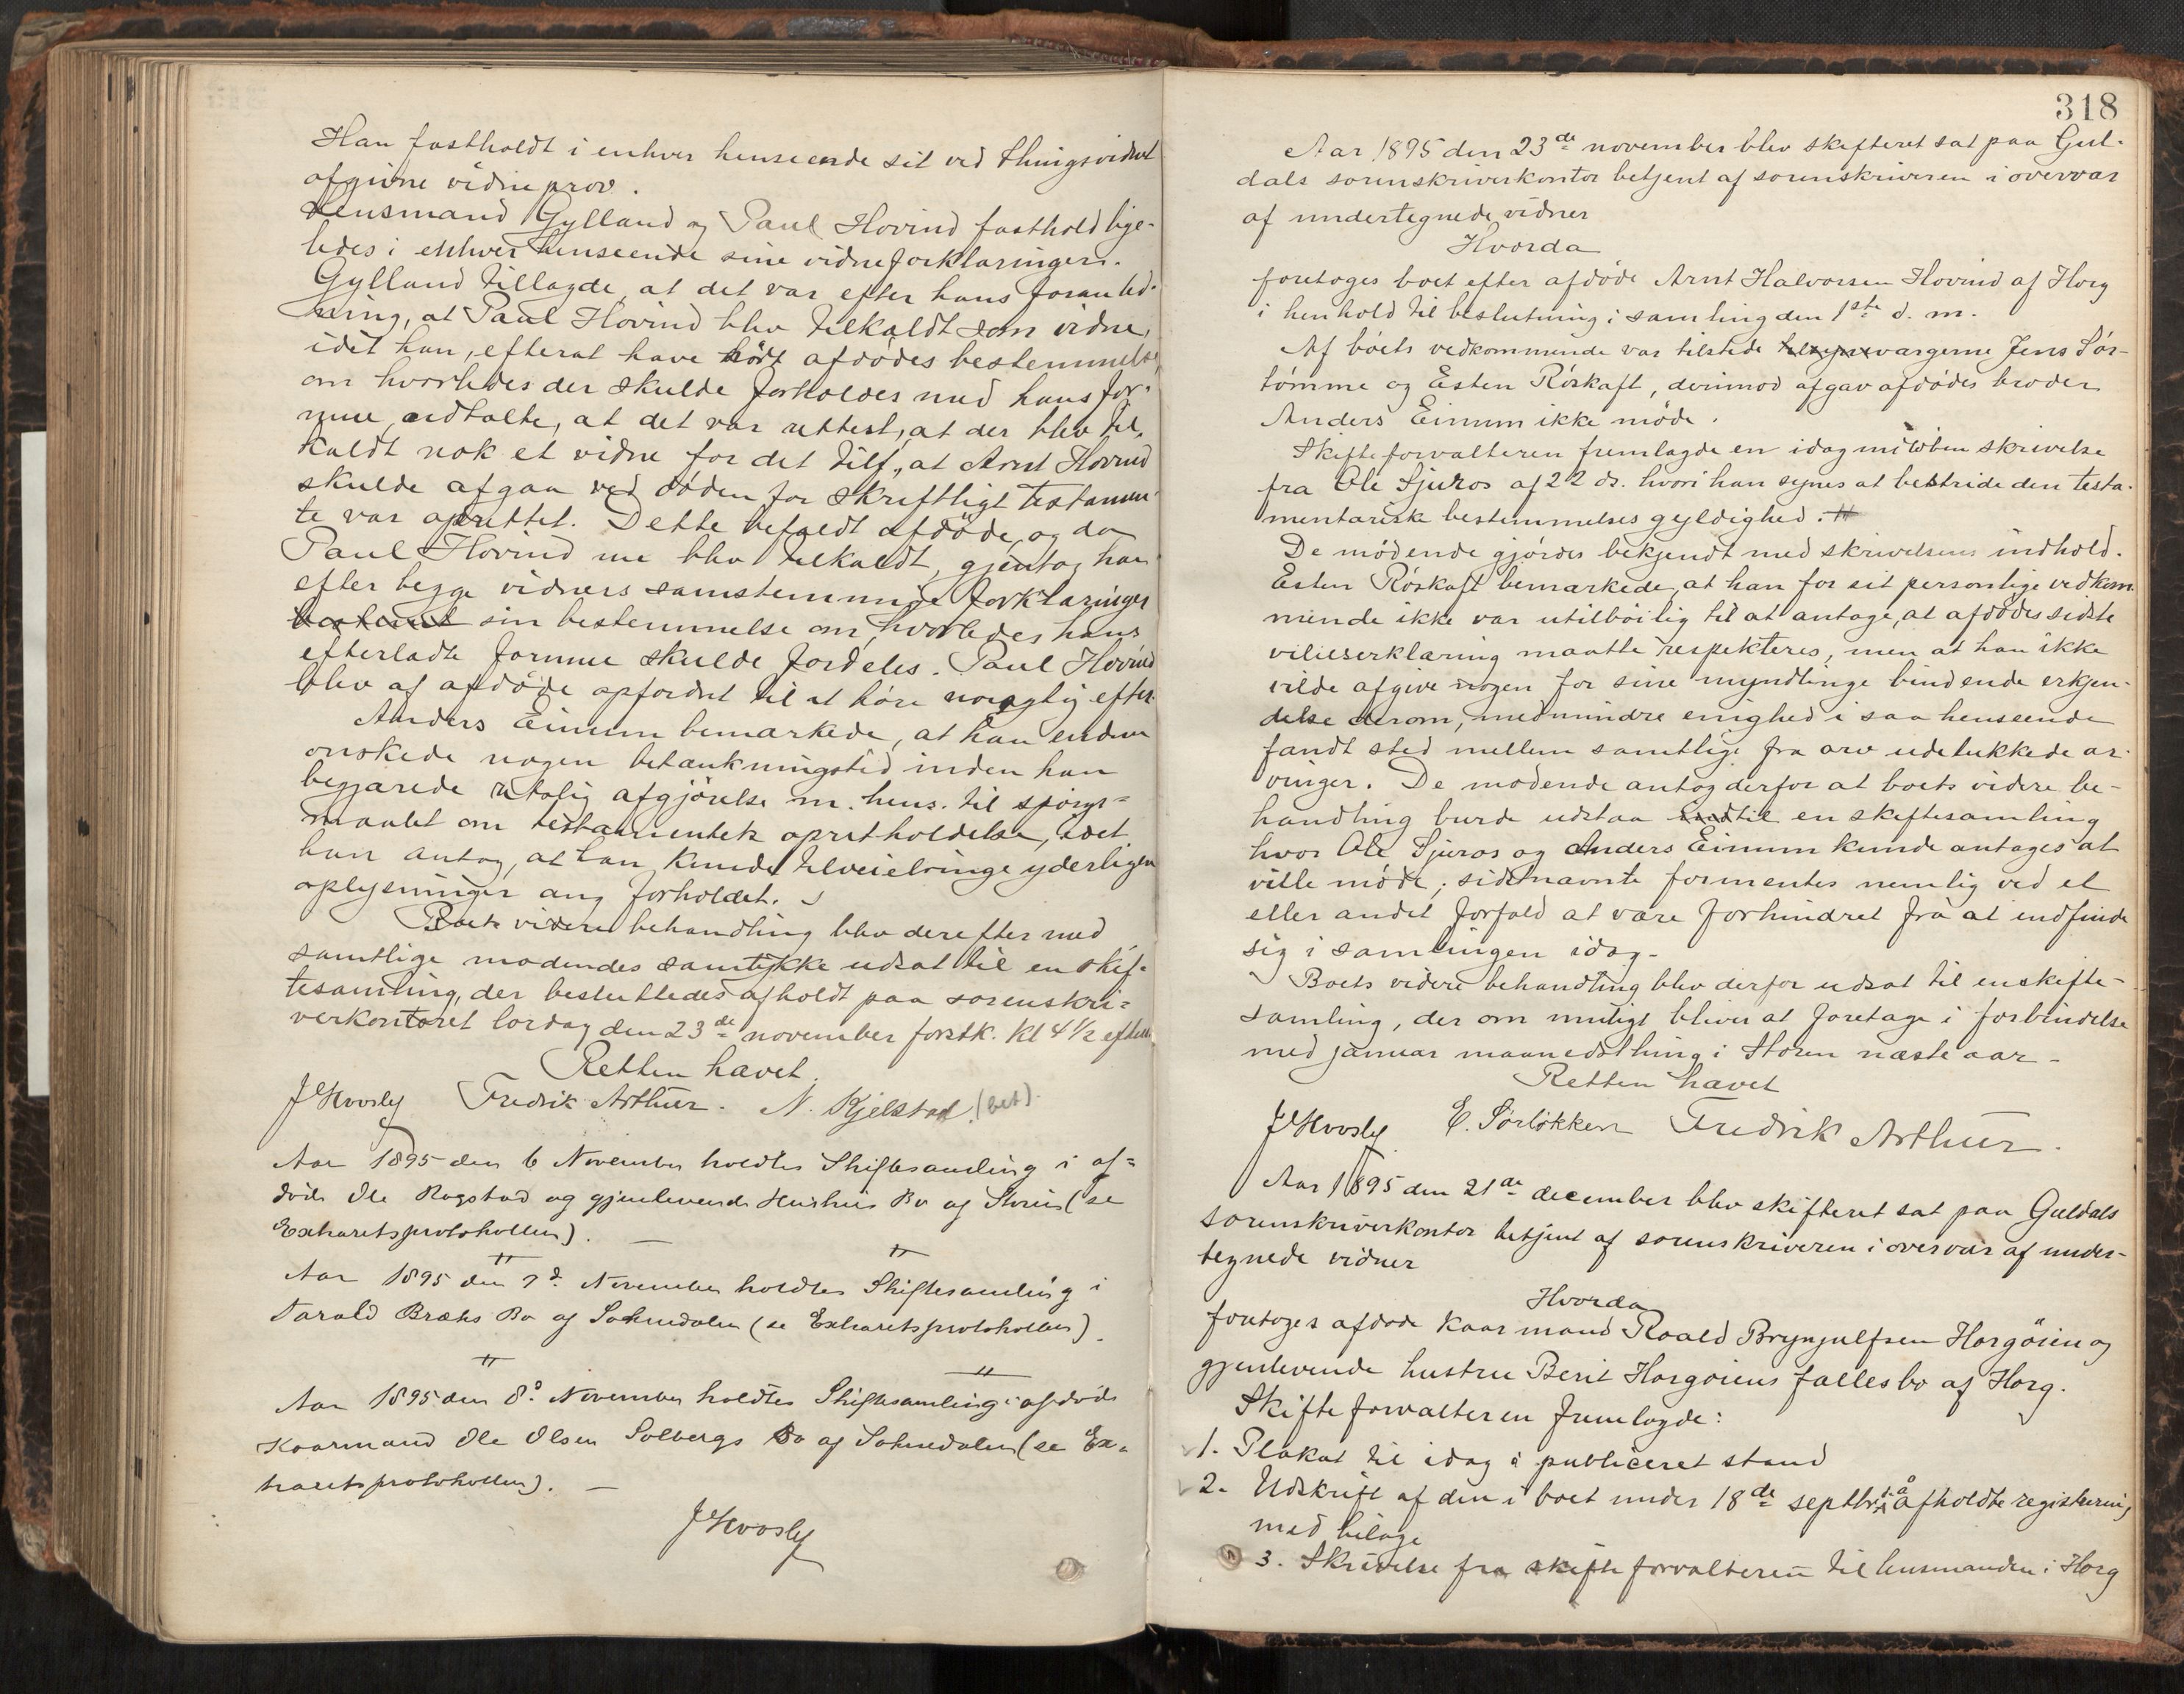 Han fastholdt i enhver henseende sit ved thingsvidnet
afgivne vidneprov.
Lensmand Gylland og Paul Hovind fasthold lige-
ledes i enhver henseende sine vidneforklaringer.
Gylland tillagde, at det var efter hans foranled-
ning, at Paul Hovind blev tilkaldt som vidne,
idet han, efterat have hørt afdødes bestemmelse,
om hvorledes der skulde forholdes med hans for-
mue, udtalte, at det var rettest, at der blev til-
kaldt nok et vidne for det tilf., at Arnt Hovind
skulde afgaa ved døden før skriftligt testamen-
te var oprettet. Dette befaldt afdøde, og da
Paul Hovind nu blev tilkaldt, gjentog han
efter begge vidners samstemmige forklaringer
bestemt sin bestemmelse om, hvorledes hans
efterladte formue skulde fordeles. Paul Hovind
blev af afdøde opfordret til at høre nøiagtig efter.
Anders Einum bemærkede, at han endnu
ønskede nogen betænkningstid inden han
begjærede retslig afgjørelse m. hens. til spørgs-
maalet om testamentets opretholdelse, idet
han antog, at han kunde tilveiebringe yderligere
oplysninger ang. forholdet.
Boets videre behandling blev derefter med
samtlige mødendes samtykke udsat til en skif-
tesamling, der besluttedes afholdt paa sorenskri-
verkontoret lørdag den 23de november førstk. kl 4 1/2 efterm
Retten hævet.
J Hvosly Fredrik Arthur. N. Kjelstad (bet).
Aar 1895 den 6 November holdtes Skiftesamling i af-
døde Ole Rogstad og gjenlevende Hustrus Bo af Støren (se
Extraretsprotokollen). —
Aar 1895 den 7d. November holdtes Skiftesamling i
Tarald Bræks Bo af Soknedalen (se Extraretsprotokollen).
Aar 1895 den 8d. November holdtes Skiftesamling i afdøde
Kaarmand Ole Olsen Solbergs Bo af Soknedalen (se Ex-
traretsprotokollen). —
J Hvosly
318
Aar 1895 den 23de november blev skifteret sat paa Gul-
dals sorenskriverkontor betjent af sorenskriveren i overvær
af undertegnede vidner
Hvorda
foretoges boet efter afdøde Arnt Halvorsen Hovind af Horg
i henhold til beslutning i samling den 1ste d. m.
Af boets vedkommende var tilstede værgerne Jens Sør-
tømme og Esten Røskaft, derimod afgav afdødes broder
Anders Einum ikke møde.
Skifteforvalteren fremlagde en idag indløben skrivelse
fra Ole Sjuros af 22 ds. hvori han synes at bestride den testa-
mentariske bestemmelses gyldighed. #
De mødende gjørdes bekjendt med skrivelsens indhold.
Esten Røskaft bemærkede, at han for sit personlige vedkom-
mende ikke var utilbøilig til at antage, at afdødes sidste
villieserklæring maatte respekteres, men at han ikke
vilde afgive nogen for sine myndlinge bindende erkjen-
delse derom, medmindre enighed i saa henseende
fandt sted mellem samtlige fra arv udelukkede ar-
vinger. De mødende antog derfor at boets videre be-
handling burde udstaa indtil en skiftesamling
hvor Ole Sjuros og Anders Einum kunde antages at
ville møde; sidstnævnte formentes nemlig ved et
eller andet forfald at være forhindret fra at indfinde
sig i samlingen idag.
Boets videre behandling blev derfor udsat til en skifte-
samling, der om muligt bliver at foretage i forbindelse
med januar maanedsthing i Støren næste aar.
Retten hævet
J Hvosly E. Sørløkken Fredrik Arthur.
Aar 1895 den 21de december blev skifteret sat paa Guldals
sorenskriverkontor betjent af sorenskriveren i overvær af under-
tegnede vidner
Hvorda
foretoges afdøde kaarmand Roald Brynjulfsen Horgøien og
gjenlevende hustru Berit Horgøiens fællesbo af Horg.
Skifteforvalteren fremlagde:
1. Plakat til idag i publiceret stand
2. Udskrift af den i boet under 18de septbr. d. å. afholdte registrering
med bilage
3. Skrivelse fra skifteforvalteren til lensmanden i Horg